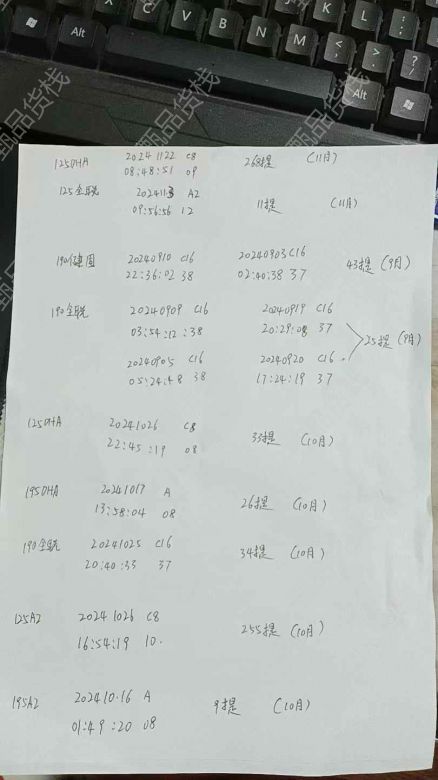 Alt
X
C
V
B
N
M
K
L
Alt
125DHA 20241122 C8 268提 (11月)
08:48:51 09
125全脱 2024113 A2 11提 (11月)
09:56:56 12
20240910 C16 20240903 C16 43提 (9月)
22:36:02 38 02:40:38 37
190全脱 20240909 C16 20240919 C16
03:54:12:38 20:29:08 37 25提 (9月)
20240905 C16 20240920 C16
05:24:48 38 17:24:19 37
125DHA 20241026 C8 33提 (10月)
22:45:19 08
195DHA 20241017 A 26提 (10月)
13:58:04 08
190全脱 20241025 C16 34提 (10月)
20:40:33 37
125A2 20241026 C8 255提 (10月)
16:54:19 10.
195A2 202410.16 A 9提 (10月)
01:49:20 08
甄品货栈